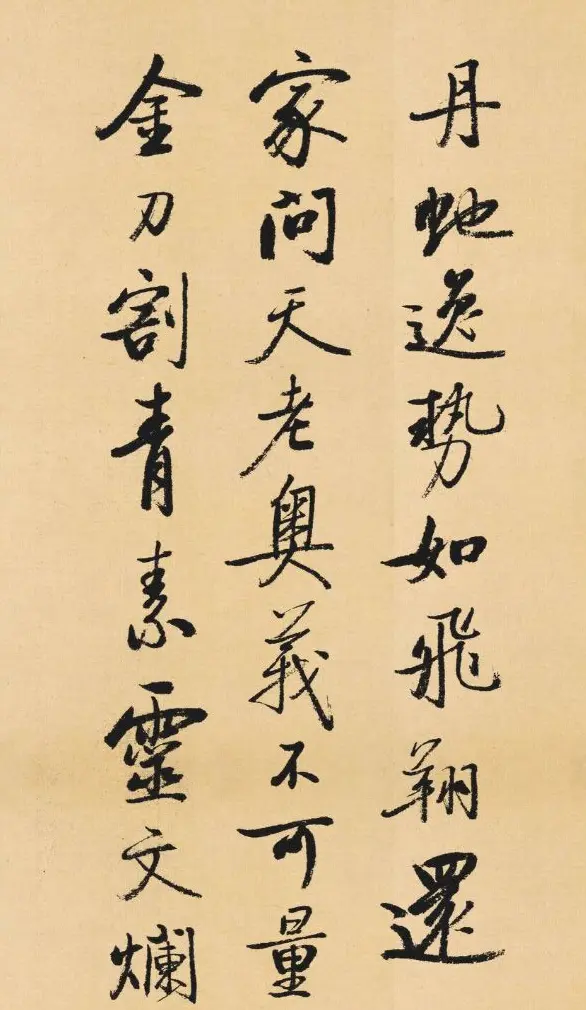 丹虵逸勢如飛翔還
家問天老奥義不可量
金刀割青素靈文爛